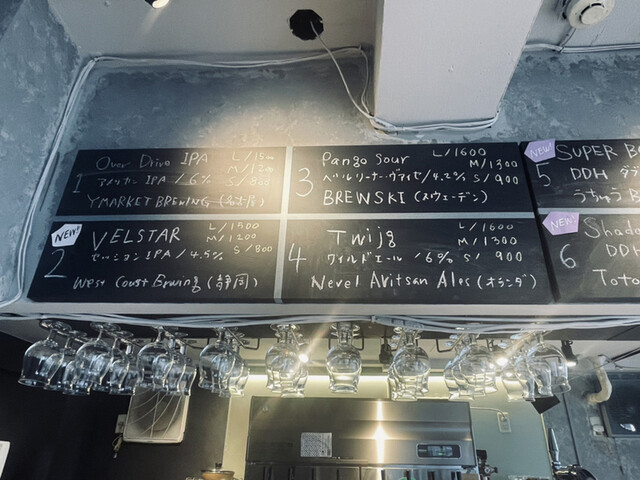 1
Over Drive IPA L/1500
M/1200
アメリカン IPA / 6% S/800
YMARKET BREWING (名古屋)
NEW!
2
VELSTAR L/1500
M/1200
セッション IPA / 4.5% S/800
West Coast Brwing (静岡)
3
Pango Sour L/1600
M/1300
ベルリーナーヴァイセ/4.2% S/900
BREWSKI (スウェーデン)
4
Twijg L/1600
M/1300
ワイルドエール /6% S/ 900
Nevel Aritsan Ales (オランダ)
NEW!
5
SUPER
DDH
うちゅう
NEW!
6
DDH